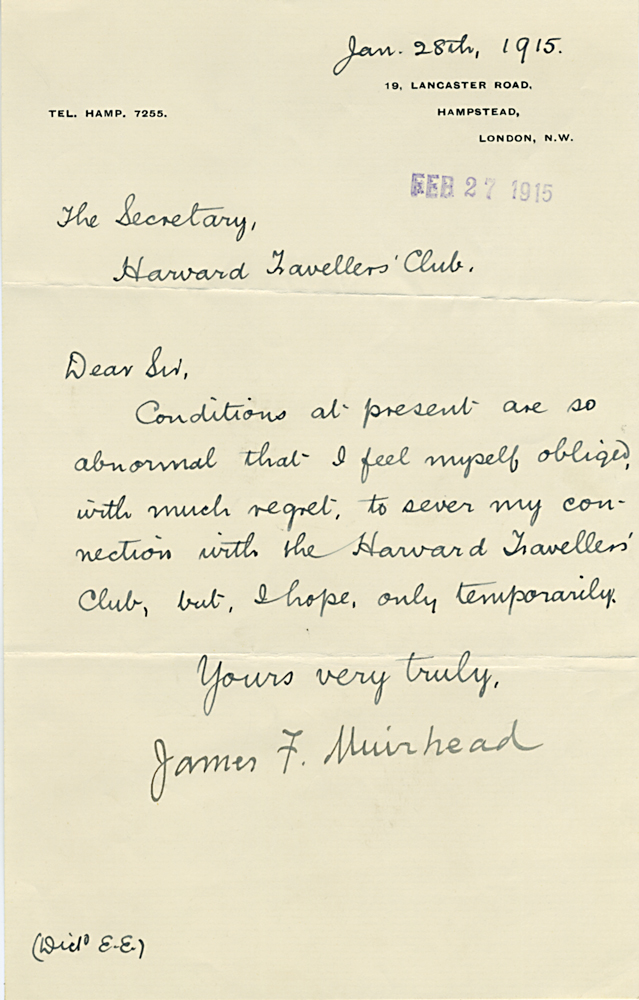 Jan. 28th, 1915.
19, LANCASTER ROAD,
TEL. HAMP. 7255.
HAMPSTEAD,
LONDON, N.W.
FEB 27 1915
The Secretary,
Harvard Travellers' Club.
Dear Sir,
Conditions at present are so
abnormal that I feel myself obliged,
with much regret, to sever my con-
nection with the Harvard Travellers'
Club, but, I hope, only temporarily.
Yours very truly,
James F. Muirhead
(Dict⁰ E.E.)